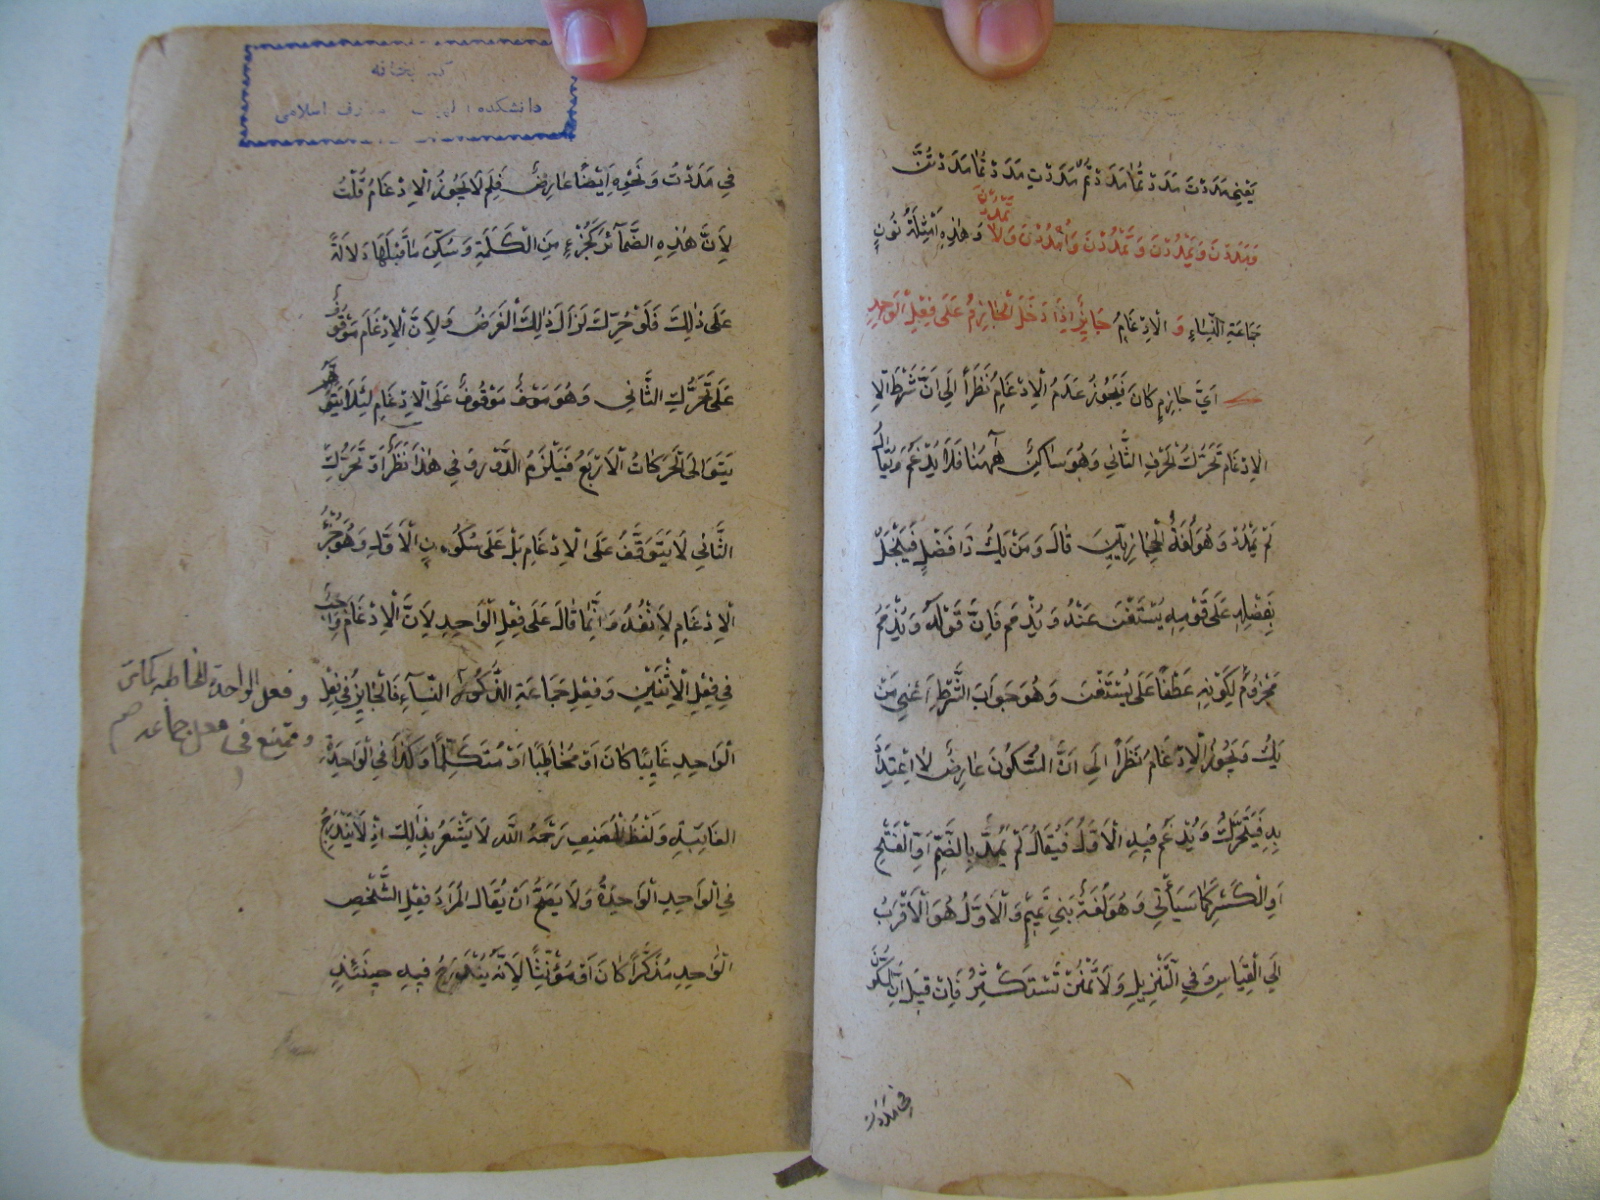 يَعْنِي مَدَدْتَ مَدَدْتُمَا مَدَدْتُمْ مَدَدْتِ مَدَدْتُمَا مَدَدْتُنَّ
وَمَدَدْنَ وَيَمْدُدْنَ وَتَمْدُدْنَ وَامْدُدْنَ وَلَا تَمْدُدْنَ وَهٰذِهِ اَمْثِلَةُ نُونِ
جَمَاعَةِ النِّسَاءِ وَ الْاِدْغَامُ جَايِزٌ اِذَا دَخَلَ الْجَازِمُ عَلَى فِعْلِ الْوَاحِدِ
اَيَّ جَازِمٍ كَانَ فَيَجُوزُ عَدَمُ الْاِدْغَامِ نَظَرًا اِلَى اَنَّ شَرْطَ الْاِ
الْاِدْغَامِ تَحَرُّكُ الْحَرْفِ الثَّانِي وَهُوَ سَاكِنٌ هٰهُنَا فَلَا يُدْغَمُ وَيُقَالُ
لَمْ يَمْدُدْ وَهُوَ لُغَةُ الْحِجَازِيِّينَ قَالَ وَمَنْ يَكُ ذَا فَضْلٍ فَيَبْخَلْ
بِفَضْلِهِ عَلَى قَوْمِهِ يُسْتَغْنَ عَنْهُ وَيُذْمَمِ فَاِنَّ قَوْلَهُ وَيُذْمَمْ
مَجْزُومٌ لِكَوْنِهِ عَطْفًا عَلَى يُسْتَغْنَ وَهُوَ جَوَابَ الشَّرْطِ اَعْنِي مَنْ
يَكُ وَيَجُوزُ الْاِدْغَامُ نَظَرًا اِلَى اَنَّ السُّكُونَ عَارِضٌ لَا اِعْتِدَادَ
بِهِ فَيَتَحَرَّكُ وَيُدْغَمُ فِيهِ الْاَوَّلُ فَيُقَالُ لَمْ يَمُدَّ بِالضَّمِّ اَوِ الْفَتْحِ
اَوِ الْكَسْرِ كَمَا سَيَأْتِي وَهُوَ لُغَةُ بَنِي تَمِيمٍ وَالْاَوَّلُ هُوَ الْاَقْرَبُ
اِلَى الْقِيَاسِ وَفِي التَّنْزِيلِ وَلَا تَمْنُنْ تَسْتَكْثِرُ فَاِنْ قِيلَ اَنَّ السُّكُونَ
فِي مَدَدْتُ
كتابخانه
دانشکده الهیات و معارف اسلامی
فِي مَدَدْتُ وَنَحْوِهِ اَيْضًا عَارِضٌ فَلِمَ لَا يَجُوزُ الْاِدْغَامُ قُلْتُ
لِاَنَّ هٰذِهِ الضَّمَآئِرَ كَجُزْءٍ مِنَ الْكَلِمَةِ وَسُكِّنَ مَا قَبْلَهَا دَلَالَةً
عَلَى ذٰلِكَ فَلَوْ حُرِّكَ لَزَالَ ذٰلِكَ الْغَرَضُ وَلِاَنَّ الْاِدْغَامَ مَوْقُوفٌ
عَلَى تَحَرُّكِ الثَّانِي وَهُوَ مَوْقُوفٌ عَلَى الْاِدْغَامِ لِئَلَّا
يَتَوَالَى الْحَرَكَاتُ الْاَرْبَعُ فَيَلْزَمُ الدَّوْرُ وَفِي هٰذَا نَظَرٌ اِذْ تَحَرُّكُ
الثَّانِي لَا يَتَوَقَّفُ عَلَى الْاِدْغَامِ بَلْ عَلَى سُكُونِ الْاَوَّلِ وَهُوَ جُزْءُ
الْاِدْغَامِ لَا نَفْسُهُ وَاِنَّمَا قَالَ عَلَى فِعْلِ الْوَاحِدِ لِاَنَّ الْاِدْغَامَ وَاجِبٌ
فِي فِعْلِ الْاِثْنَيْنِ وَفِعْلِ جَمَاعَةِ الذُّكُورِ النِّسَآءِ فَالْجَايِزُ فِي فِعْلِ
و فعل الواحدة المخاطبة كما مر
و ممتنع فى فعل جماعة
الْوَاحِدِ غَايِبًا كَانَ اَوْ مُخَاطَبًا اَوْ مُتَكَلِّمًا وَكَذَا فِي الْوَاحِدَةِ
الْغَائِبَةِ وَلَفْظُ الْمُصَنِّفِ رَحْمَهُ اللّٰهِ لَا يَشْعُرُ بِذٰلِكَ اِذْ لَا يَنْدَرِجُ
فِي الْوَاحِدِ الْوَاحِدَةُ وَلَا يَصِحُّ اَنْ يُقَالَ الْمُرَادُ فِعْلِ الشَّخْصِ
الْوَاحِدِ مُذَكَّرًا كَانَ اَوْ مُؤَنَّثًا لِاَنَّهُ يَنْدَرِجُ فِيهِ حِينَئِذٍ